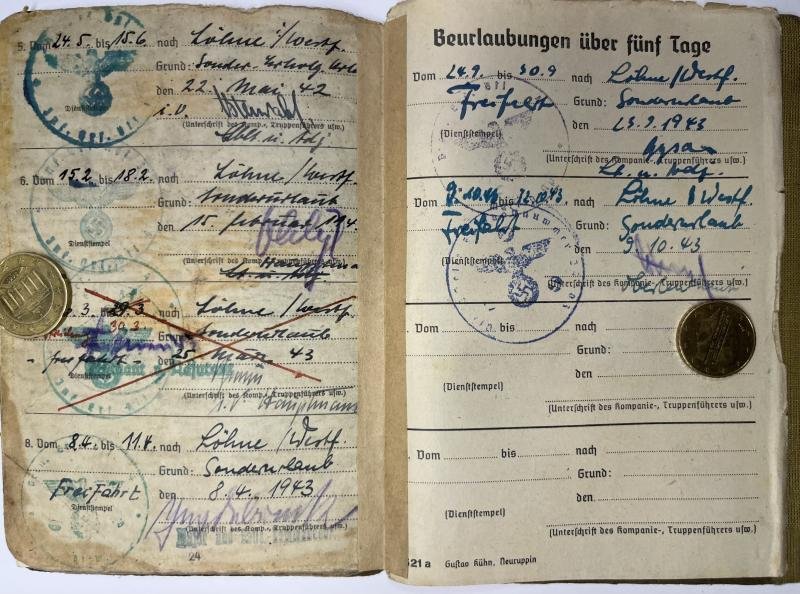 5. Vom 24.5. bis 15.6 nach Löhne i/Westf.
Grund: Sonder-Erholg. Urlb
den 22. Mai 42
Dienststempel
i.V.
(Unterschrift des Komp.-, Truppenführers usw.)
6. Vom 15.2. bis 18.2. nach Löhne /Westf.
Grund: Sonderurlaub
den 15. Februar 194
Dienststempel
(Unterschrift des Komp.-, Truppenführers usw.)
Lt. u. Adj.
3. bis 29.3. nach Löhne /Westf.
30.3.
Grund: Sonderurlaub
- freifahrt - den 25. März 43
Dienststempel
(Unterschrift des Komp.-, Truppenführers usw.)
i.V. Hauptmann
8. Vom 8.4. bis 11.4. nach Löhne /Westf.
Grund: Sonderurlaub
Freifahrt den 8.4. 1943
Dienststempel
(Unterschrift des Komp.-, Truppenführers usw.)
24
Beurlaubungen über fünf Tage
Vom 24.9. bis 30.9 nach Löhne/Westf.
Freifahrt Grund: Sonderurlaub
den 23.9.1943
(Dienststempel)
(Unterschrift des Kompanie-, Truppenführers usw.)
Lt. u. Adj.
Vom 9.10.43 bis 12.10.43 nach Löhne /Westf.
Freifahrt Grund: Sonderurlaub
den 9.10.43
(Dienststempel)
(Unterschrift des Kompanie-, Truppenführers usw.)
Oberleutnant
Vom bis nach
Grund:
den
(Dienststempel)
(Unterschrift des Kompanie-, Truppenführers usw.)
Vom bis nach
Grund:
den
(Dienststempel)
(Unterschrift des Kompanie-, Truppenführers usw.)
521a Gustav Kühn, Neuruppin